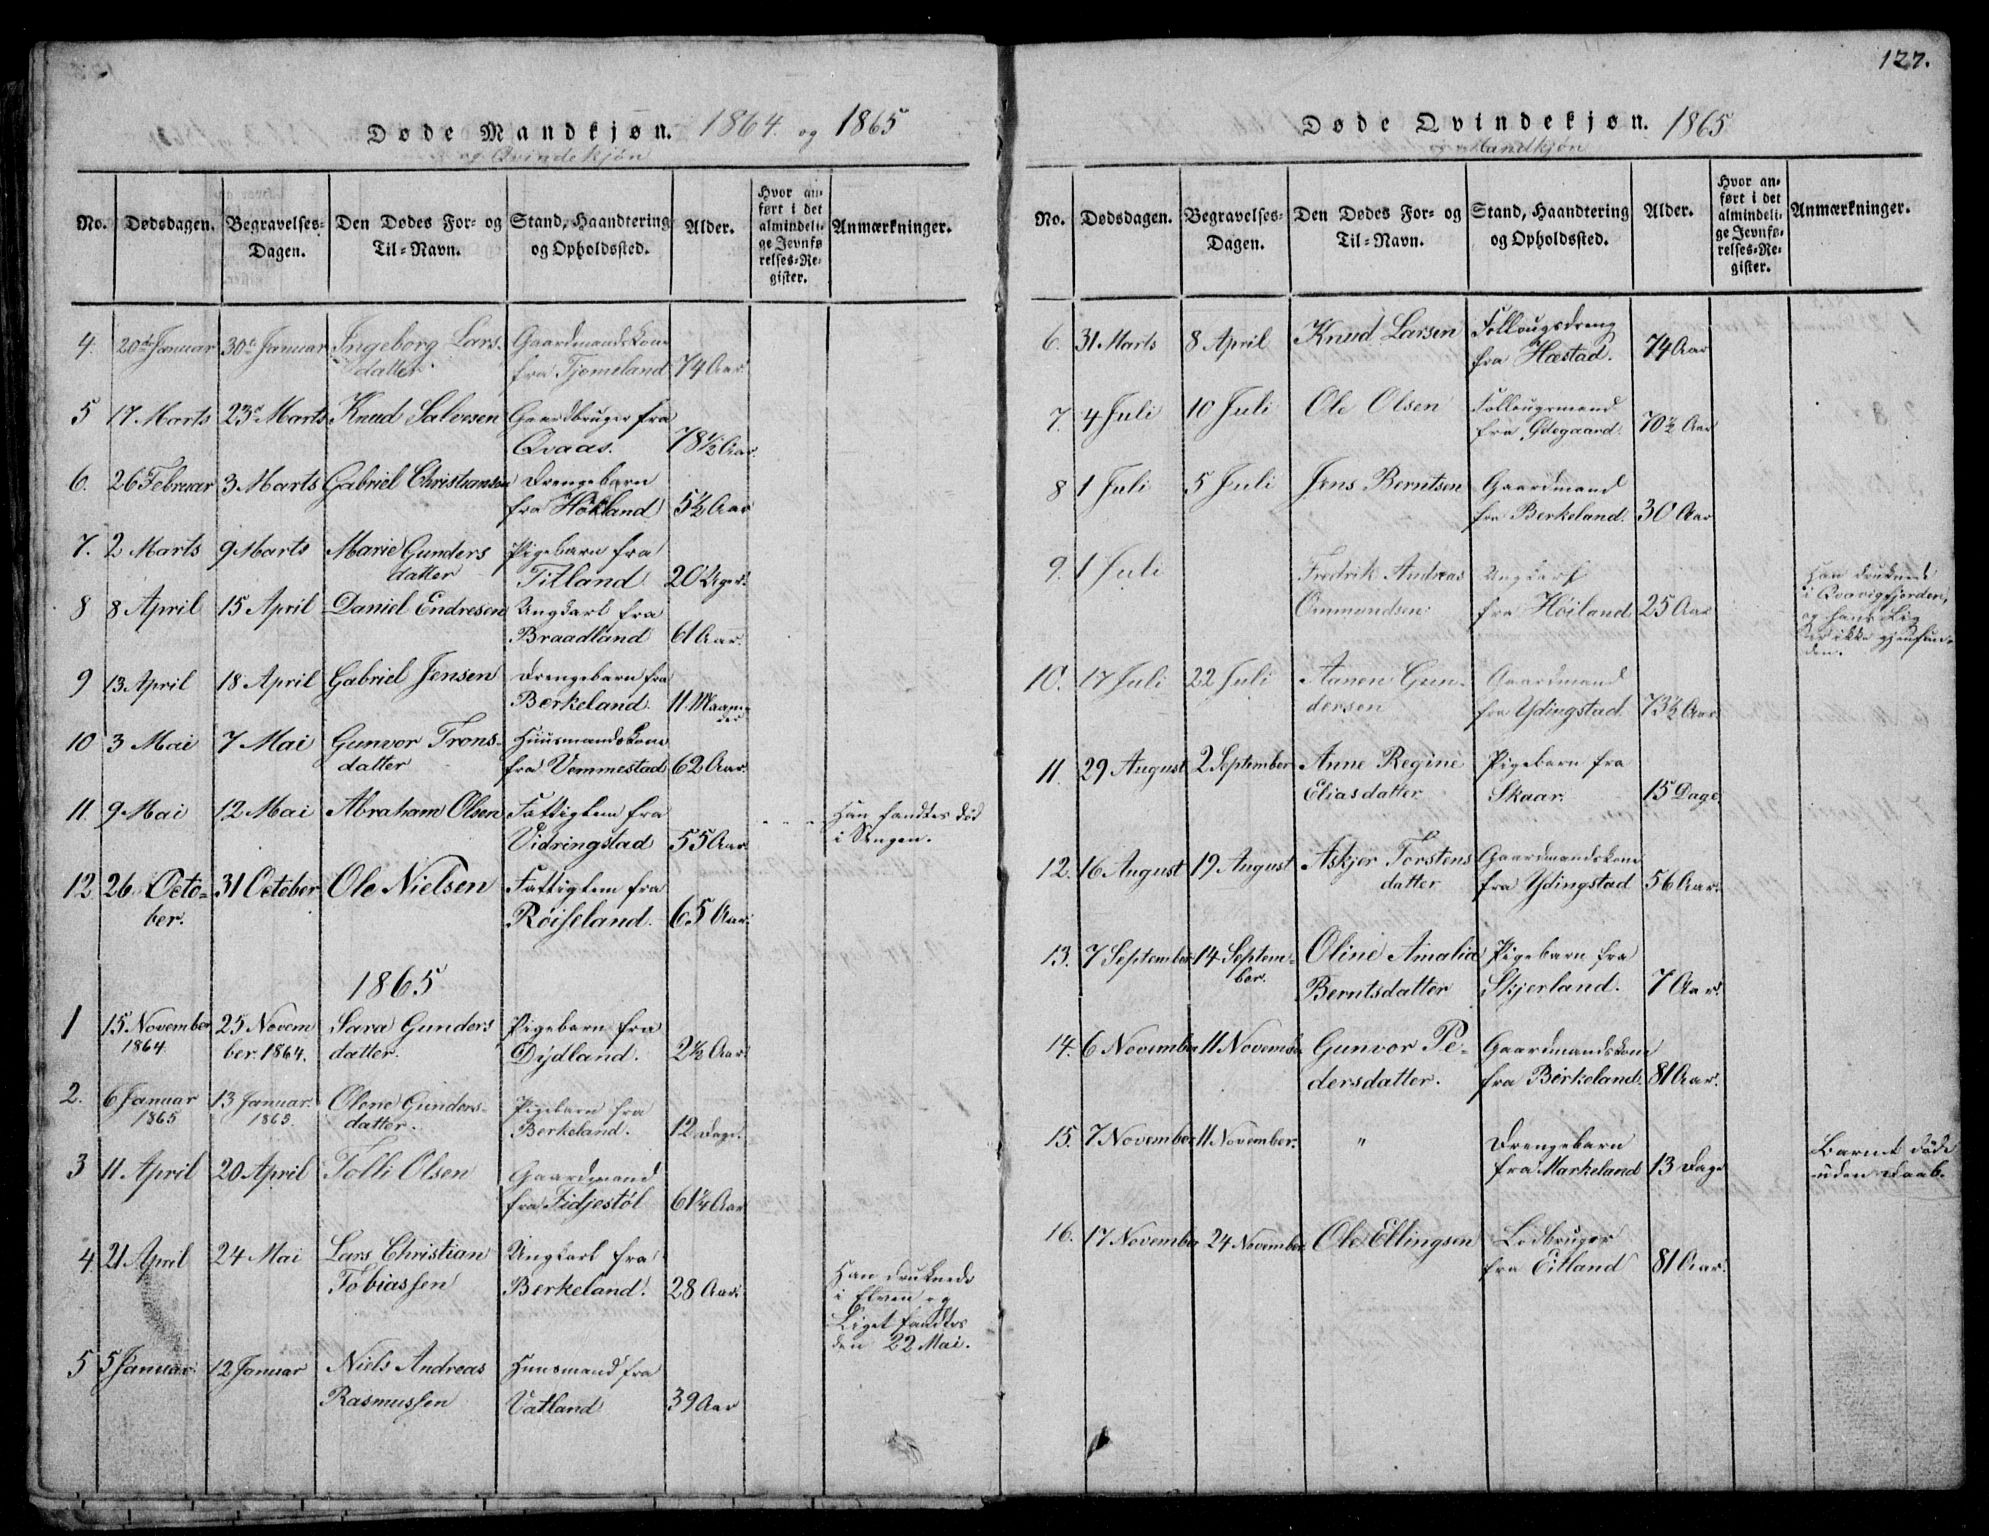 Døde Mandkjøn. 1864. og 1865
og Qvindekjøn
No. Dødsdagen. Begravelses-Dagen. Den Dødes For- og Til-Navn. Stand, Haandtering og Opholdssted. Alder. Hvor anført i det almindelige Jevnførelses-Register. Anmærkninger.
4. 20de Januar 30te Januar Ingeborg Lars- Gaardmandskone
datter fra Tjomeland 74 Aar
5 17 Marts 23de Marts Knud Salvesen Gaardbruger fra
Qvaas. 78½ Aar.
6. 26 Februar 3 Marts Gabriel Christiansen Drengebarn
fra Høkland 5½ Aar
7. 2 Marts 9 Marts Marie Gunders Pigebarn fra
datter Titland 20 Uger.
8 8 April 15 April Daniel Endresen Ungkarl fra
Braadland 61 Aar.
9 13 April 18 April Gabriel Jensen Drengebarn fra
Berkeland. 11 Maane-
der
10 3 Mai 7 Mai Gunvor Trons- Huusmandskone
datter fra Vemmestad 62 Aar.
11. 9 Mai 12 Mai Abraham Olsen Fattiglem fra Han fandtes død
Vidringstad 55 Aar i Sengen.
12 26 Octo- 31 October Ole Nielsen Fattiglem fra
ber. Røiseland. 65 Aar.
1865
1 15 November 25 Novem Sara Gunders Pigebarn fra
1864. ber. 1864. datter. Dydland. 2½ Aar.
2. 6 Januar 13 Januar. Olene Gunders- Pigebarn fra
1865 1865. datter. Berkeland. 12 Dage.
3 11 April 20 April Tolli Olsen Gaardmand
fra Fidjestøl 61¼ Aar
4. 21 April 24 Mai Lars Christian Ungkarl fra Han druknede
Tobiassen Berkeland. 28 Aar. i Elven og
Liget fandtes
den 22 Mai.
5 5 Januar. 12 Januar Niels Andreas Huusmand fra
Rasmussen Vatland 39 Aar
127.
Døde Qvindekjøn. 1865
og Mandkjøn
No. Dødsdagen. Begravelses-Dagen. Den Dødes For- og Til-Navn. Stand, Haandtering og Opholdssted. Alder. Hvor anført i det almindelige Jevnførelses-Register. Anmærkninger.
6. 31 Marts 8 April Knud Larsen Follougsdreng
fra Hæstad. 74 Aar
7. 4 Juli 10 Juli Ole Olsen Follougsmand
fra Ødegaard. 70½ Aar
8 1 Juli 5 Juli Jens Berntsen Gaardmand
fra Berkeland. 30 Aar
9. 1 Juli Fredrik Andreas Ungkarl Han druknede
Ommundsen. fra Høiland 25 Aar i Qvavigfjorden,
og hans Lig
er ikke gjenfun-
den.
10. 17 Juli 22 Juli Aanen Gun- Gaardmand
dersen fra Ydingstad 73½ Aar
11. 29 August 2 September Anne Regine Pigebarn fra
Eliasdatter Skaar. 15 Dage.
12. 16 August 19 August Askjer Torstens Gaardmandskone
datter fra Ydingstad 56 Aar.
13. 7 September 14 Septem- Oline Amalia Pigebarn fra
ber. Berntsdatter Skjerland. 7 Aar.
14. 6 November 11 November Gunvor Pe- Gaardmandskone
dersdatter. fra Berkeland. 81 Aar.
15. 7 November 11 November. " Drengebarn Barnet døde
fra Markeland 13 Dage uden Daab.
16. 17 November 24 November Ole Ellingsen Lodbruger
fra Eitland 81 Aar.